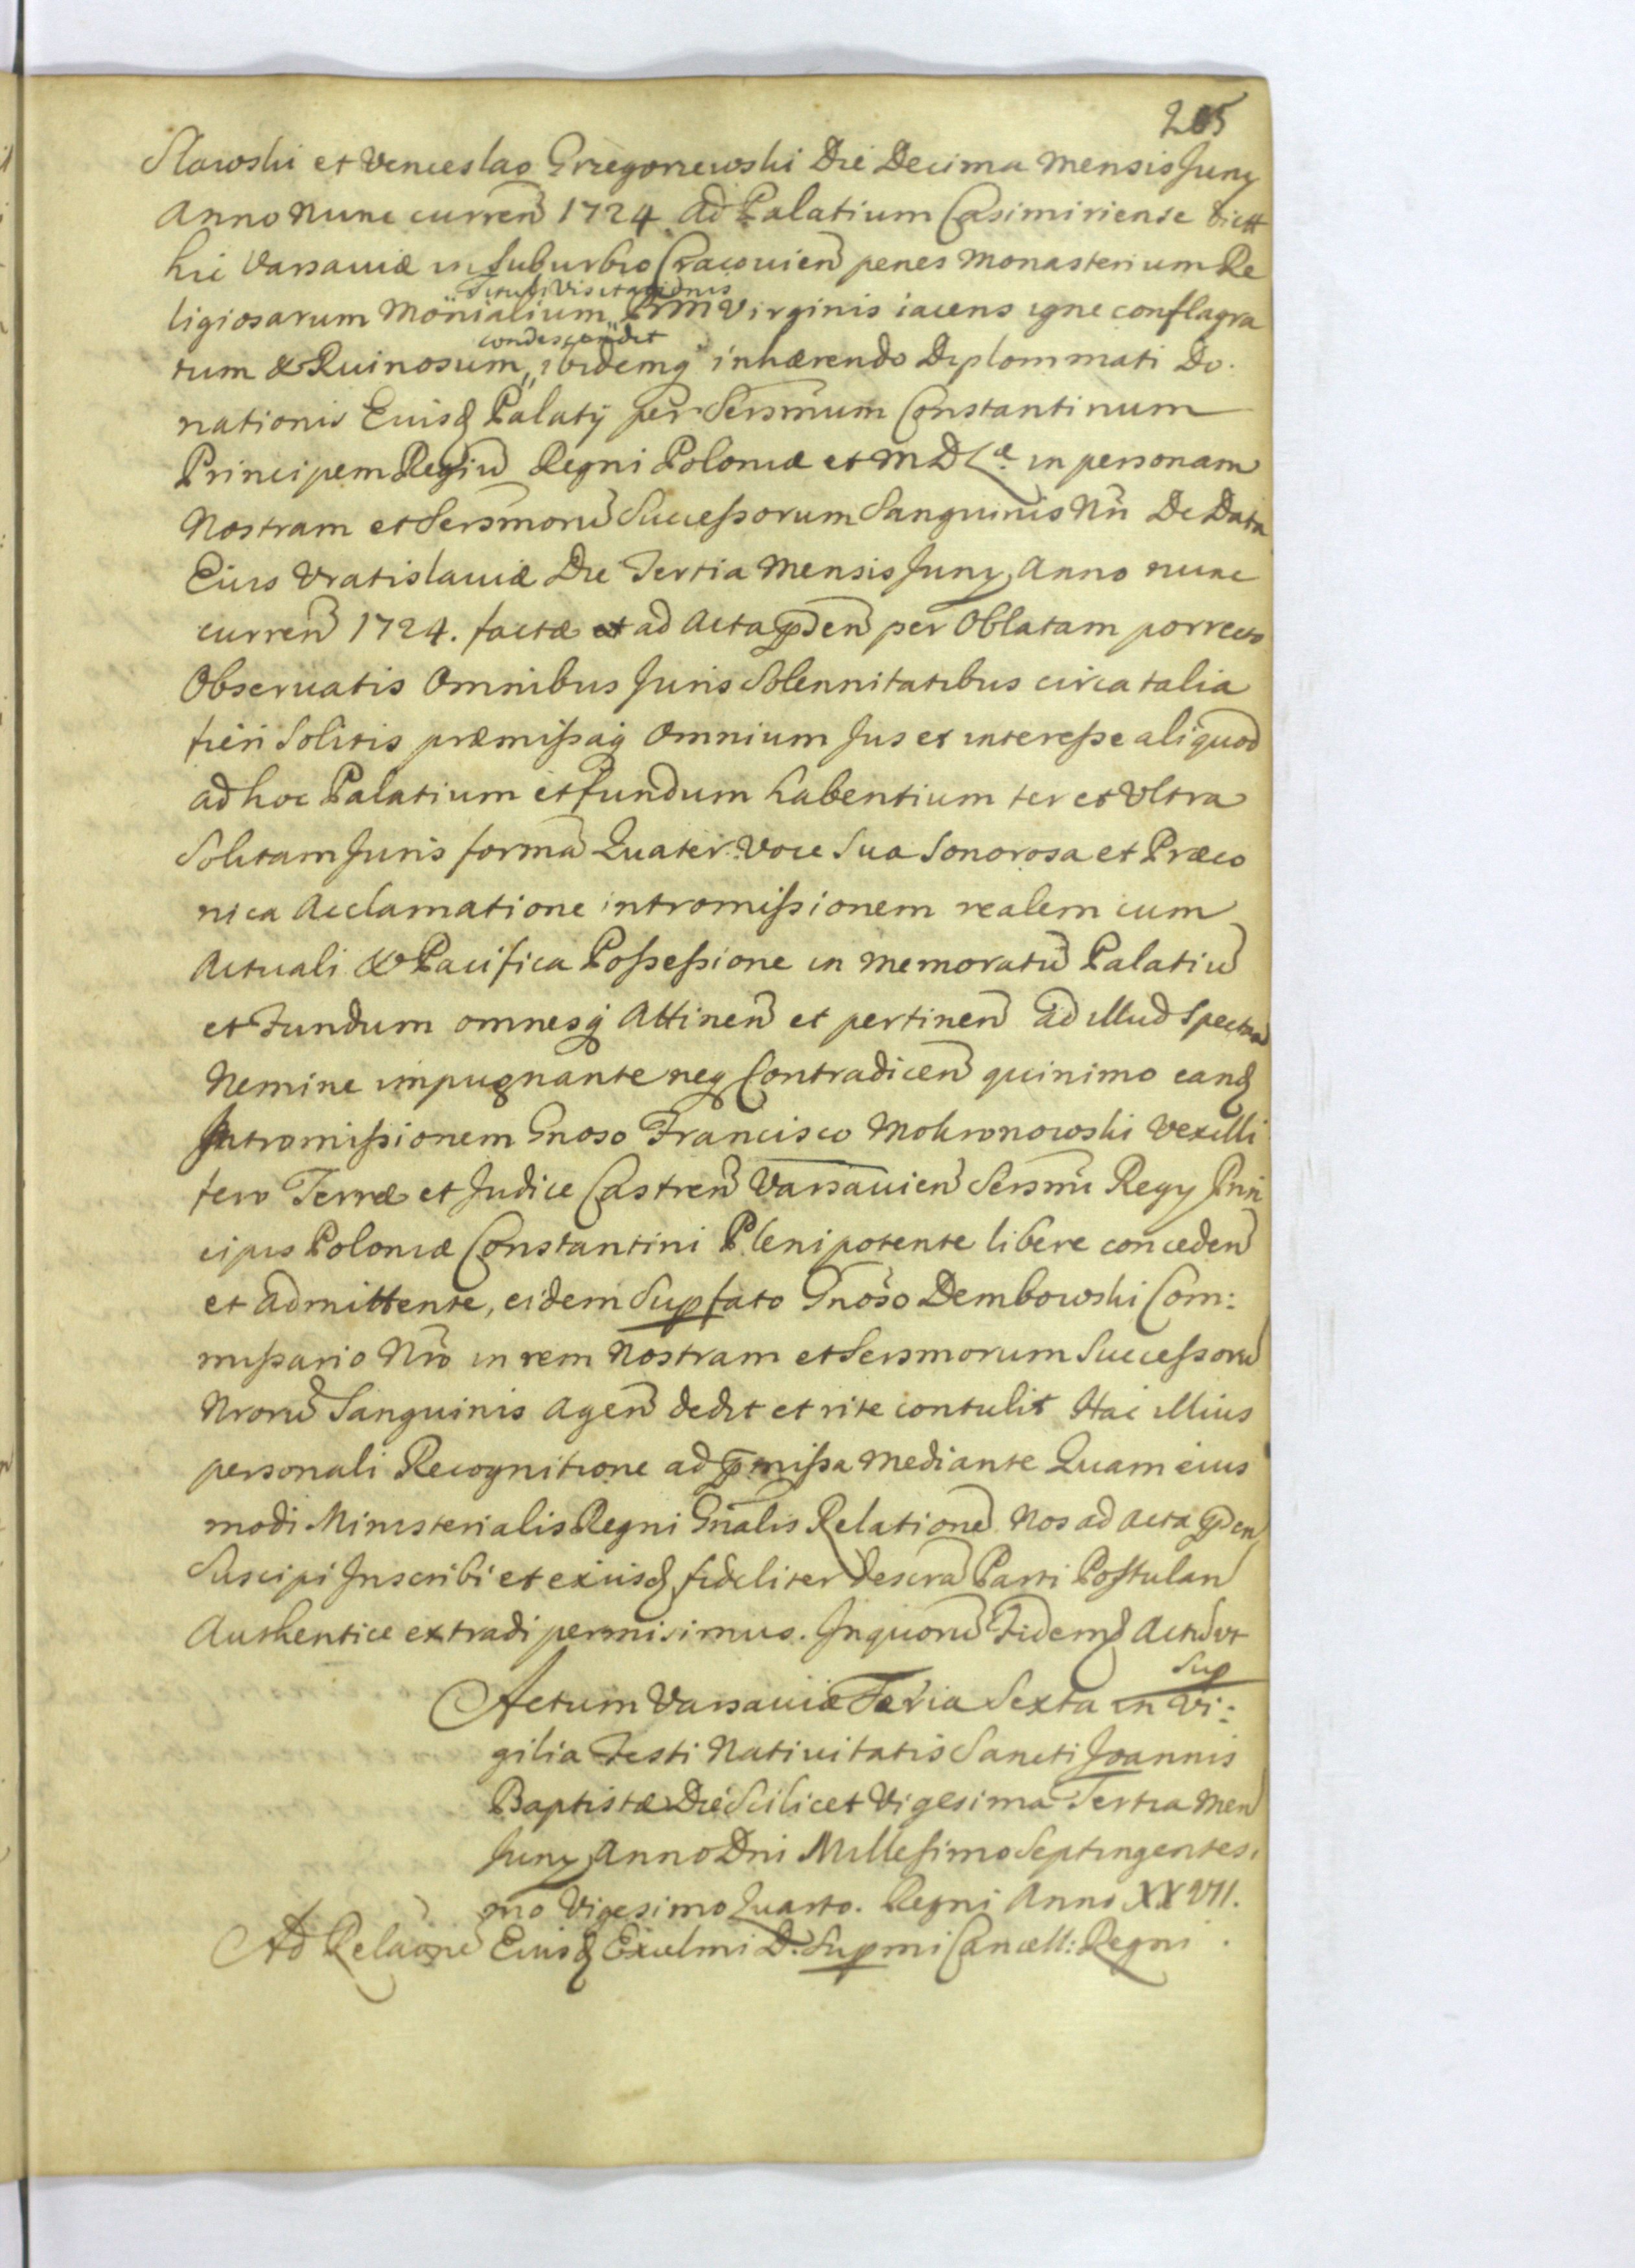 205
Slawski et Venceslao Grzegorzewski Die Decima Mensis Juny
Anno Nunc curren 1724 ad Palatium Casimiriense dictt
hic Varsaviæ in Suburbio Cracovien penes Monasterium Re
Tituli Visitationis
ligiosarum Monialium Virginis iacens igne conflagra
condescendit
tum & Ruinosum, ibidemq inhærendo Diplommati Do.
nationis Eiusd Palatij per Sersmum Constantinum
Principem Regiu Regni Poloniæ et M D L æ in personam
Nostram et Sersmoru Successorum Sanguinis Nri De Data
Eius Vratislaviæ Die Tertia Mensis Juny Anno nunc
curren 1724. factæ et ad Acta pden per Oblatam porrecto
Observatis Omnibus Juris Solennitatibus circa talia
fieri Solitis præmissaq Omnium Jus et interesse aliquod
ad hoc Palatium et fundum habentium ter et Ultra
Solitam Juris forma Quater Voce Sua Sonorosa et Præco
nica Acclamatione intromissionem realem cum
Actuali & Pacifica Possessione in memoratu Palatiu
et Fundum omnesq Attinen et pertinen ad illud Spectan
Nemine impugnante neq Contradicen quinimo eand
Intromissionem Gnoso Francisco Mokronowski Vexilli
fero Terræ et Judice Castren Varsavien Sersmi Regy Prin
cipis Poloniæ Constantini Plenipotente libere conceden
et admittente, eidem Supfato Gnoso Dembowski Com:
missario Nro in rem Nostram et Sersmorum Successoru
Nroru Sanguinis Agen dedit et rite contulit Hac illius
personali Recognitione ad pmissa mediante Quam eius
modi Ministerialis Regni Gnalis Relatione Nos ad Acta pden
Suscipi Inscribi et exiisd fideliter descra Parti Postulan
Authentice extradi permisimus. In quoru Fidem Actu ut
Sup
Actum Varsaviæ Feria Sexta in Vi:
gilia Festi Nativitatis Sancti Joannis
Baptistæ Die Scilicet Vigesima Tertia Men
Juny Anno Dni Millesimo Septingentesi
mo Vigesimo Quarto. Regni Anno XXVII.
Ad Relaone Eiusd Excelmi D. Supmi Cancell: Regni.